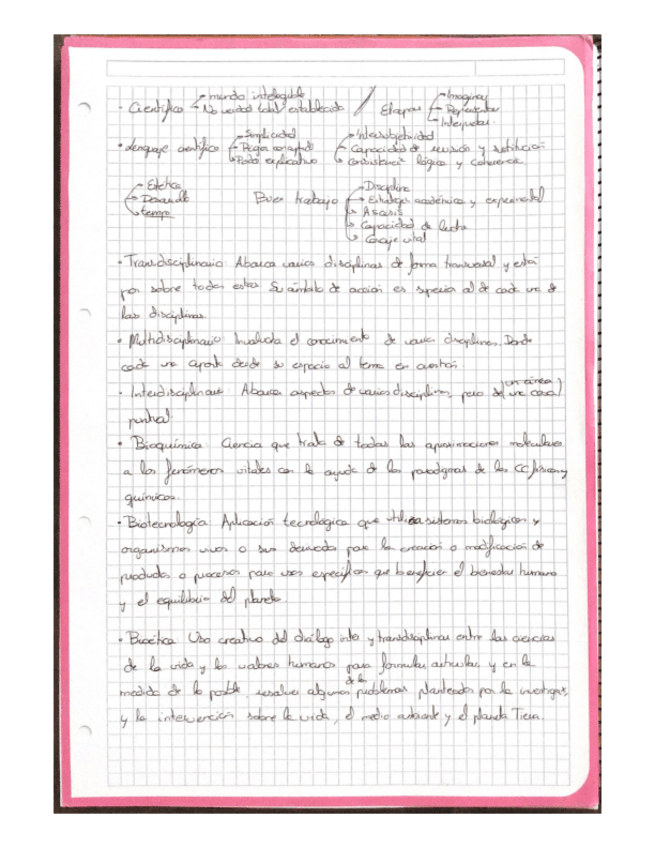 · Científico → mundo inteligible / Etapas → Imaginar
→ No verdad total establecida → Representar
→ Interpretar.
· Lenguaje científico → Simplicidad → Intersubjetividad
→ Rigor conceptual → Capacidad de revisión y rectificación
→ Poder explicativo → consistencia lógica y coherencia.
→ Estética → Disciplina
→ Desarrollo Buen trabajo → Estrategia académica y experimental
→ tiempo → Ascesis
→ Capacidad de lucha
→ Coraje vital
· Transdisciplinario: Abarca varias disciplinas de forma transversal y está
por sobre todas estas. Su ámbito de acción es superior al de cada una de
las disciplinas.
· Multidisciplinario: Involucra el conocimiento de varias disciplinas. Donde
cada una aporta desde su espacio al tema en cuestión.
· Interdisciplinario: Abarca aspectos de varias disciplinas, pero de (un área) una cosa
puntual.
· Bioquímica: Ciencia que trata de todas las aproximaciones moleculares
a los fenómenos vitales con la ayuda de los paradigmas de las CC físicas y
químicas.
· Biotecnología: Aplicación tecnológica que utiliza sistemas biológicos y
organismos vivos o sus derivados para la creación o modificación de
productos o procesos para usos específicos que beneficien el bienestar humano
y el equilibrio del planeta.
· Bioética: Uso creativo del diálogo inter y transdisciplinar entre las ciencias
de la vida y los valores humanos para formular, articular, y en la
medida de lo posible, resolver algunos de los problemas planteados por la investigación,
y la intervención sobre la vida, el medio ambiente y el planeta Tierra.